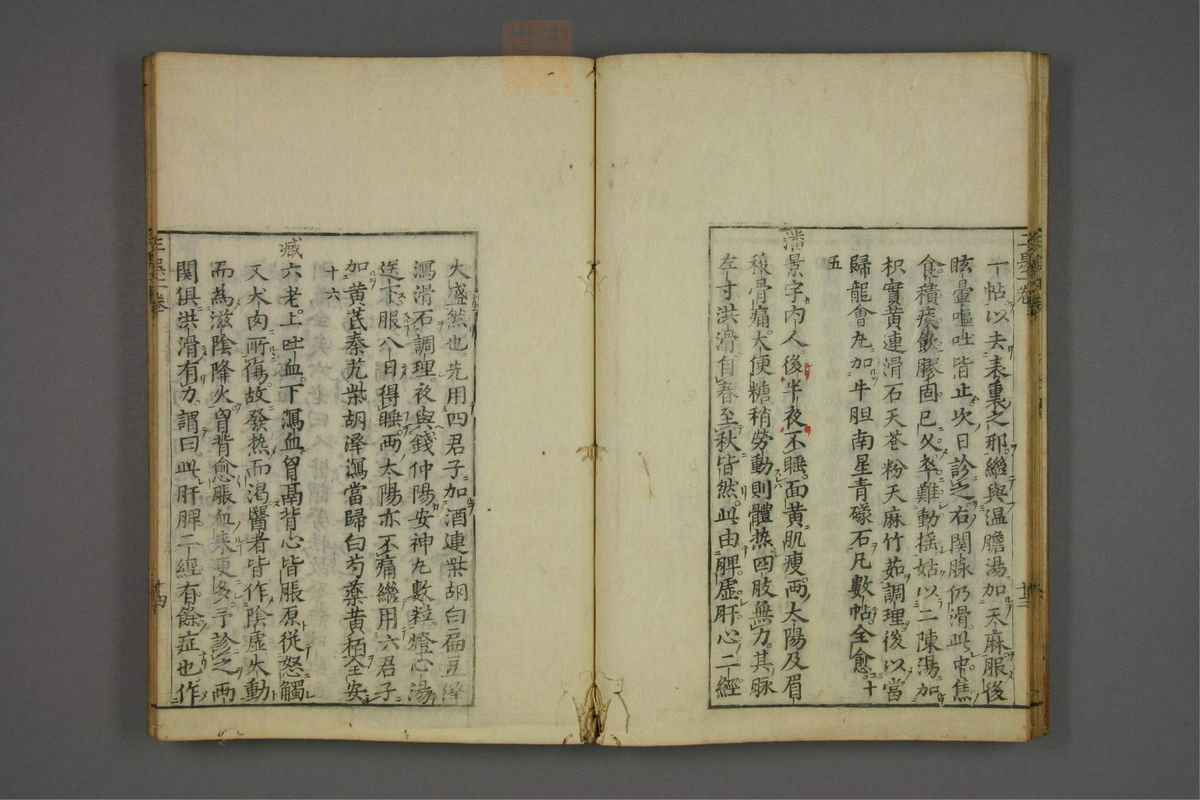 一帖以去表裏之邪繼與温膽湯加天麻服後
眩暈嘔吐皆止次日診之右関脉仍滑此中焦
食積痰飲膠固已久卒難動揺姑以二陳湯加
枳實黄連滑石天花粉天麻竹茹調理後以當
歸龍會丸加牛胆南星青礞石凡數帖全愈十
五
潘景字内人後半夜不睡面黄肌瘦两太陽及眉
稜骨痛大便糖稍勞動則體热四肢無力其脉
左寸洪滑自春至秋皆然此由脾虚肝心二經
火盛然也先用四君子加酒連柴胡白扁豆澤
瀉滑石調理夜與錢仲陽安神丸數粒燈心湯
送下服八日得睡两太陽亦不痛繼用六君子
加黄芪秦艽柴胡澤瀉當歸白芍藥黄栢全安
十六
臧六老上吐血下瀉血胷鬲背心皆脹原従怒觸
又犬肉所傷故發热而渴醫者皆作陰虚火動
而為滋陰降火胷背愈脹血来更多予診之两
関俱洪滑有力謂曰此肝脾二經有餘症也作